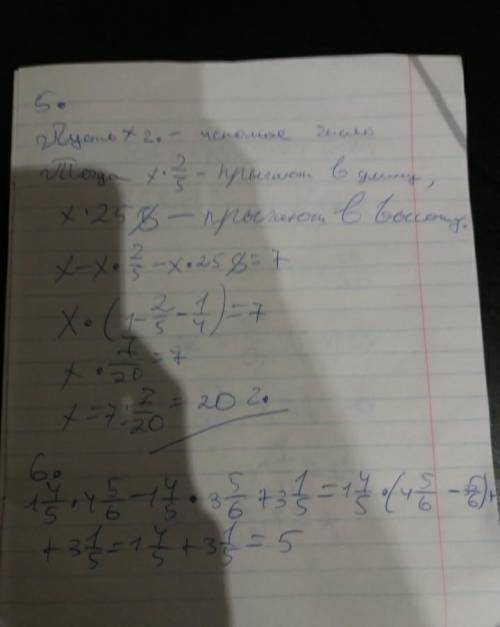 5.
Пусть x г. - искомое число
Тогда x · 2/5 - прыгают в длину,
x · 25% - прыгают в высоту.
x - x · 2/5 - x · 25% = 7
x · (1 - 2/5 - 1/4) = 7
x · 7/20 = 7
x = 7 : 7/20 = 20 г.
6.
1 4/5 · 4 5/6 - 1 4/5 · 3 5/6 + 3 1/5 = 1 4/5 · (4 5/6 - 3 5/6) +
+ 3 1/5 = 1 4/5 + 3 1/5 = 5